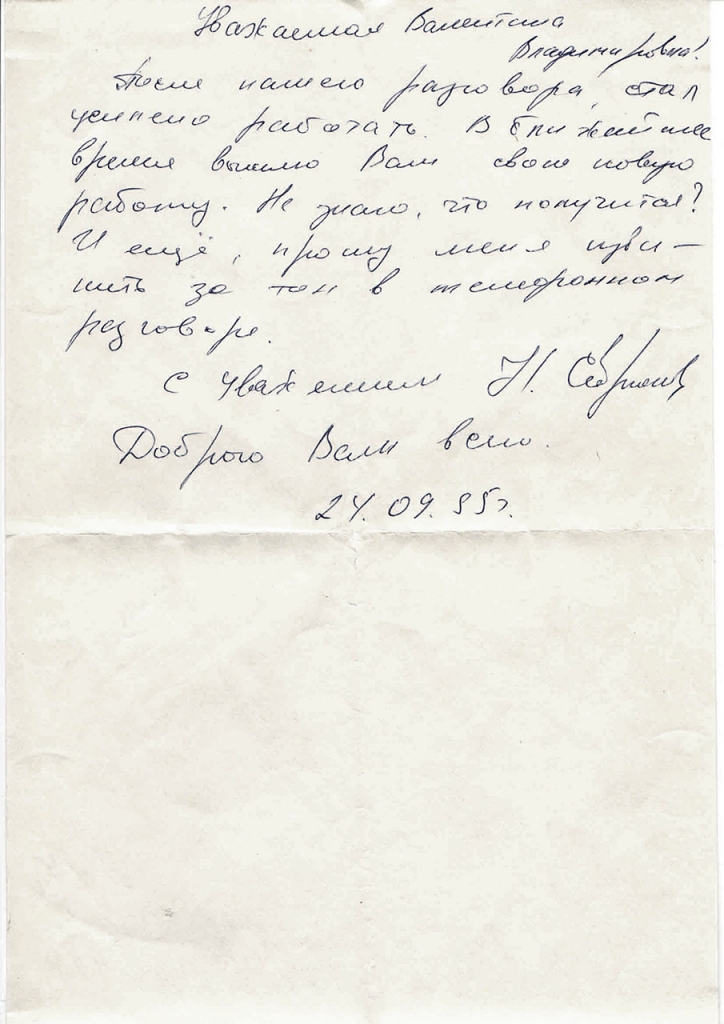 Уважаемая Валентина
Владимировна!
После нашего разговора, стал
усилено работать. В ближайшее
время вышлю Вам свою новую
работу. Не знаю, что получится?
И ещё, прошу меня изви-
нить за тон в телефонном
разговоре.
С уважением Н.
Доброго Вам всего.
24.09.95г.